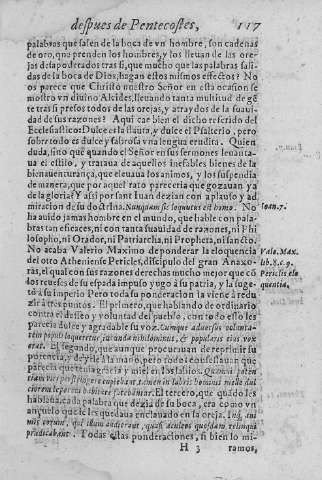 despues de Pentecostes, 117
palabras que salen de la boca de vn hombre, son cadenas
de oro, que prenden los hombres, y los lleuan de las ore
jas desapoderados tras si, que mucho que las palabras sali
das de la boca de Dios, hagan estos mismos efectos? No
os parece que Christo nuestro Señor en esta ocasion se
mostro vn diuino Alcides, lleuando tanta multitud de gē
te tras si presos todos de las orejas, y atraydos de la suaui
dad de sus razones? Aqui cae bien el dicho referido del
Ecclesiastico: Dulce es la flauta, y dulce el Psalterio, pero
sobre todo es dulce y sabrosa vna lengua erudita. Quien
duda, sino que quando el Señor en sus sermones leuanta-
ua el estilo, y trataua de aquellos inefables bienes de la
bienauenturança, que eleuaua los animos, y los suspendia
de manera, que por aquel rato pareceria que gozauan ya
de la gloria? Y assi por esso San Iuan dezian con aplauso y ad
miracion de su doctrina. Nunquam sic loquutus est homo. No
Ioan. 7.
ha auido jamas hombre en el mundo, que hable con pala-
bras tan eficaces, ni con tanta suauidad de razones, ni Phi
losopho, ni Orador, ni Patriarcha, ni Propheta, ni sancto.
No acaba Valerio Maximo de ponderar la eloquencia
Vale. Max.
del otro Atheniense Pericles, discipulo del gran Anaxo-
lib. 8. c. 9.
ras, el qual con sus razones derechas mucho mejor que cō
Periclis elo
los reueses de su espada impuso yugo à su patria, y la suge
quentia.
tò a su imperio. Pero toda su ponderacion la viene à redu
zir à tres puntos. El primero, que hablando de ordinario
contra el gusto y voluntad del pueblo, con todo esso les
parecia dulce y agradable su voz. Cumque aduersus volunta-
tem populi loqueretur, iucunda nihilominus, & popularis eius vox
erat. El segundo, que aunque procurauan de restistir su
potencia, y de yrle à la mano, pero todos confessauan que
parecia que tenia gracia y miel en los labios.
El tercero, que quando les
hablaua, cada palabra que dezia de su boca, era como vn
anjuelo que les quedaua enclauado en la oreja.
predicabant. Todas estas ponderaciones, si bien lo mi-
H 3 ramos,